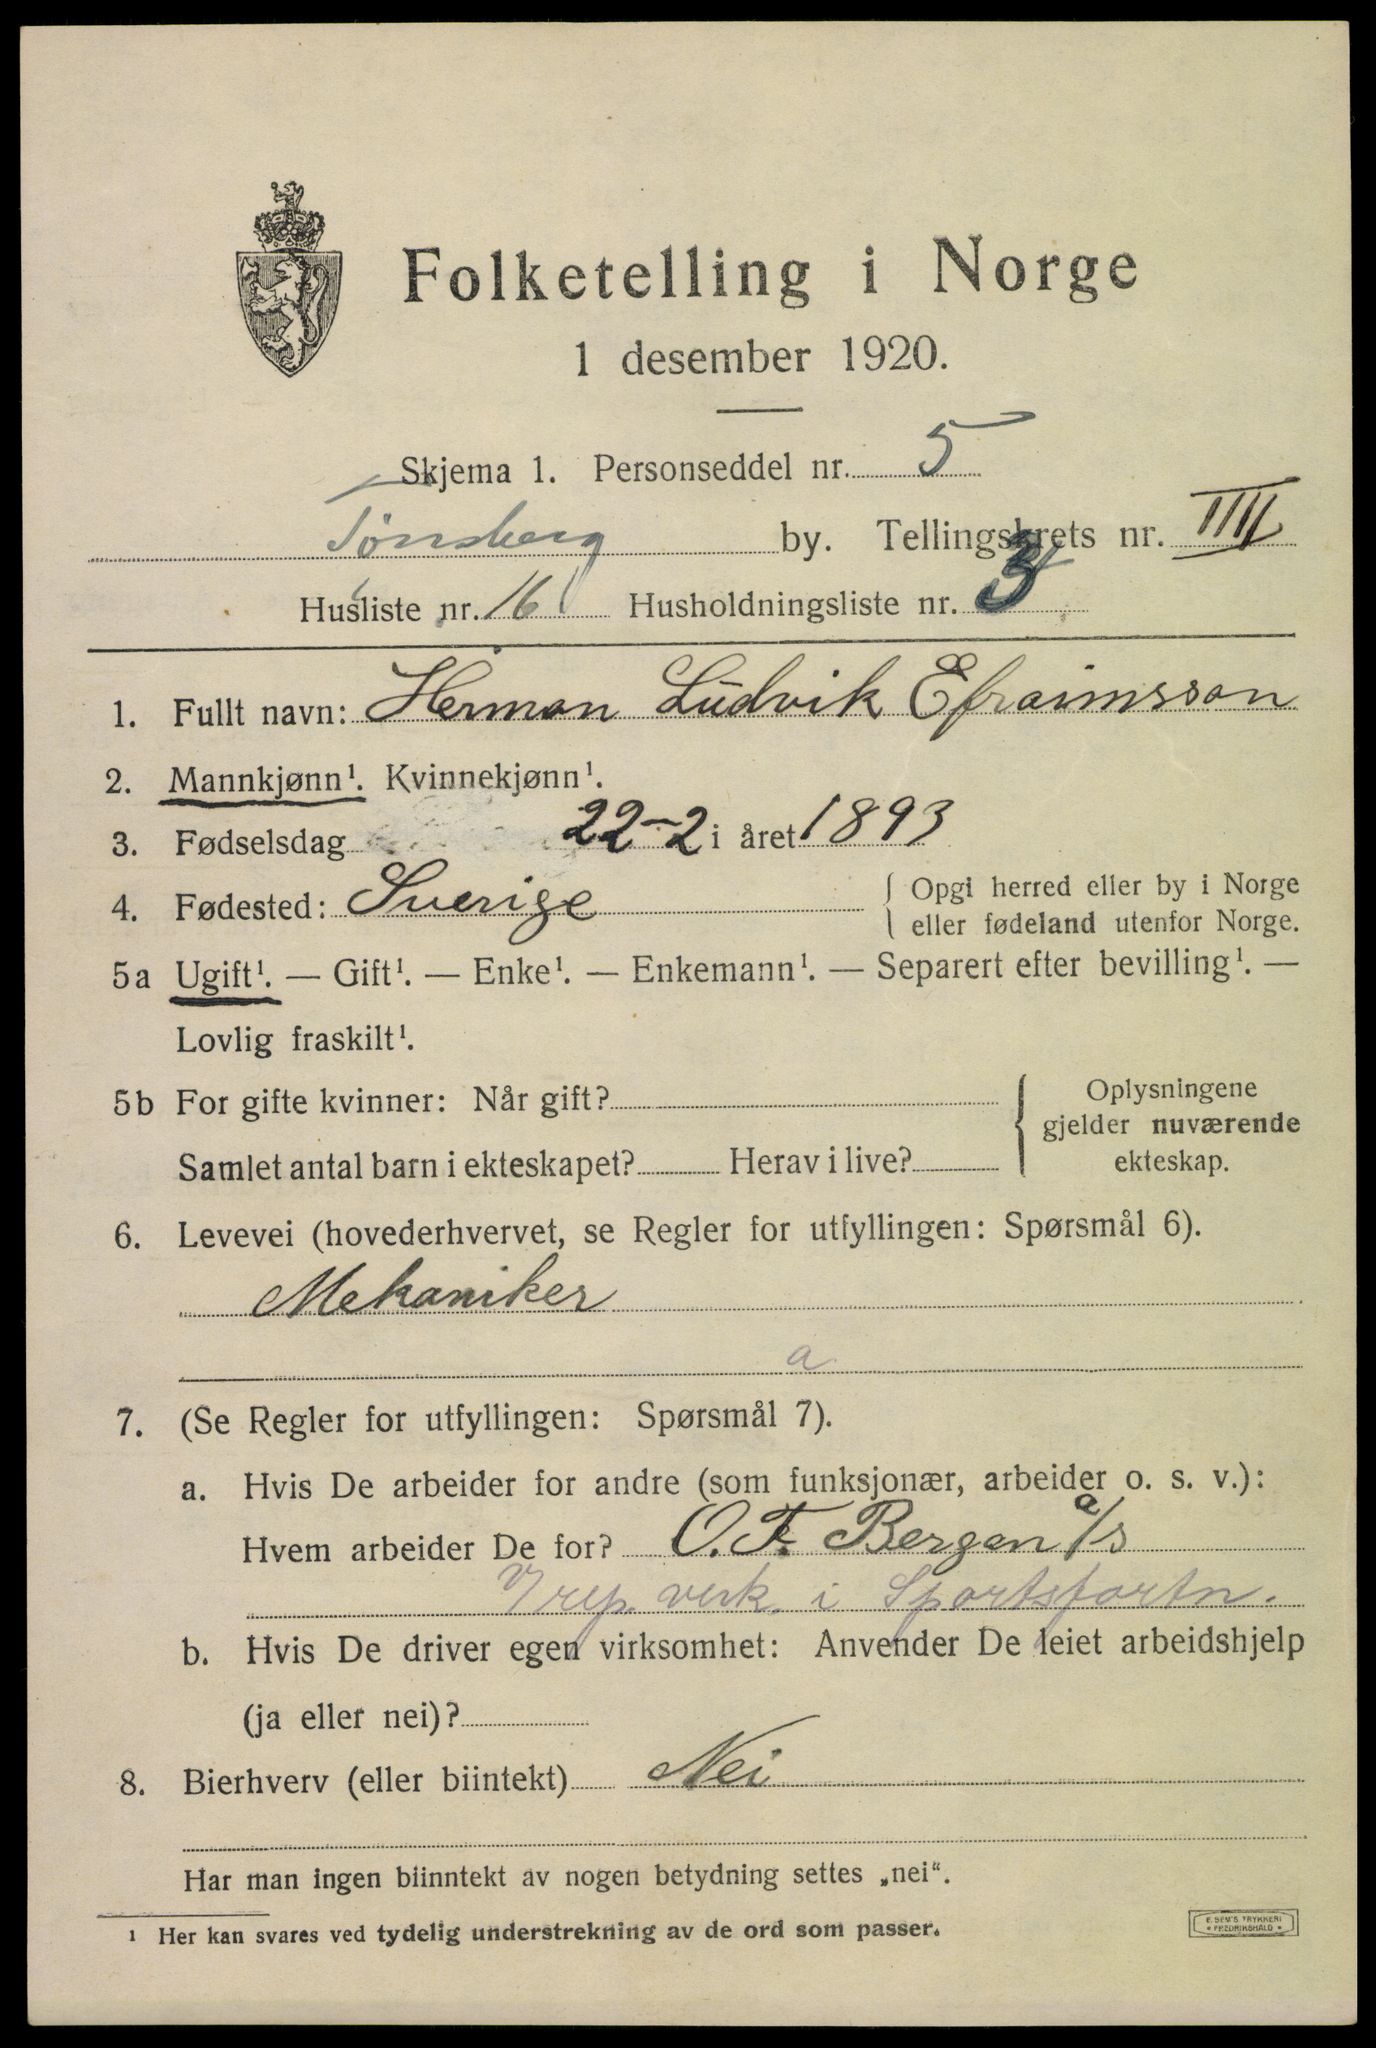 Folketelling i Norge
1 desember 1920.
Skjema 1. Personseddel nr. 5
Tønsberg by. Tellingskrets nr. IIII
Husliste nr. 16 Husholdningsliste nr. 3
1. Fullt navn: Herman Ludvik Efraimsson
2. Mannkjønn¹. Kvinnekjønn¹.
3. Fødselsdag 22-2 i året 1893
4. Fødested: Sverige { Opgi herred eller by i Norge
eller fødeland utenfor Norge.
5a Ugift¹. — Gift¹. — Enke¹. — Enkemann¹. — Separert efter bevilling¹. —
Lovlig fraskilt¹.
5b For gifte kvinner: Når gift?
Samlet antal barn i ekteskapet? Herav i live?
Oplysningene
gjelder nuværende
ekteskap.
6. Levevei (hovederhvervet, se Regler for utfyllingen: Spørsmål 6).
Mekaniker
a
7. (Se Regler for utfyllingen: Spørsmål 7).
a. Hvis De arbeider for andre (som funksjonær, arbeider o. s. v.):
Hvem arbeider De for? O. F. Bergan a/s
rep. verk. i Sportsfortn.
b. Hvis De driver egen virksomhet: Anvender De leiet arbeidshjelp
(ja eller nei)?
8. Bierhverv (eller biintekt) Nei
Har man ingen biinntekt av nogen betydning settes „nei“.
¹ Her kan svares ved tydelig understrekning av de ord som passer.
E. SEM'S TRYKKERI
FREDRIKSHALD